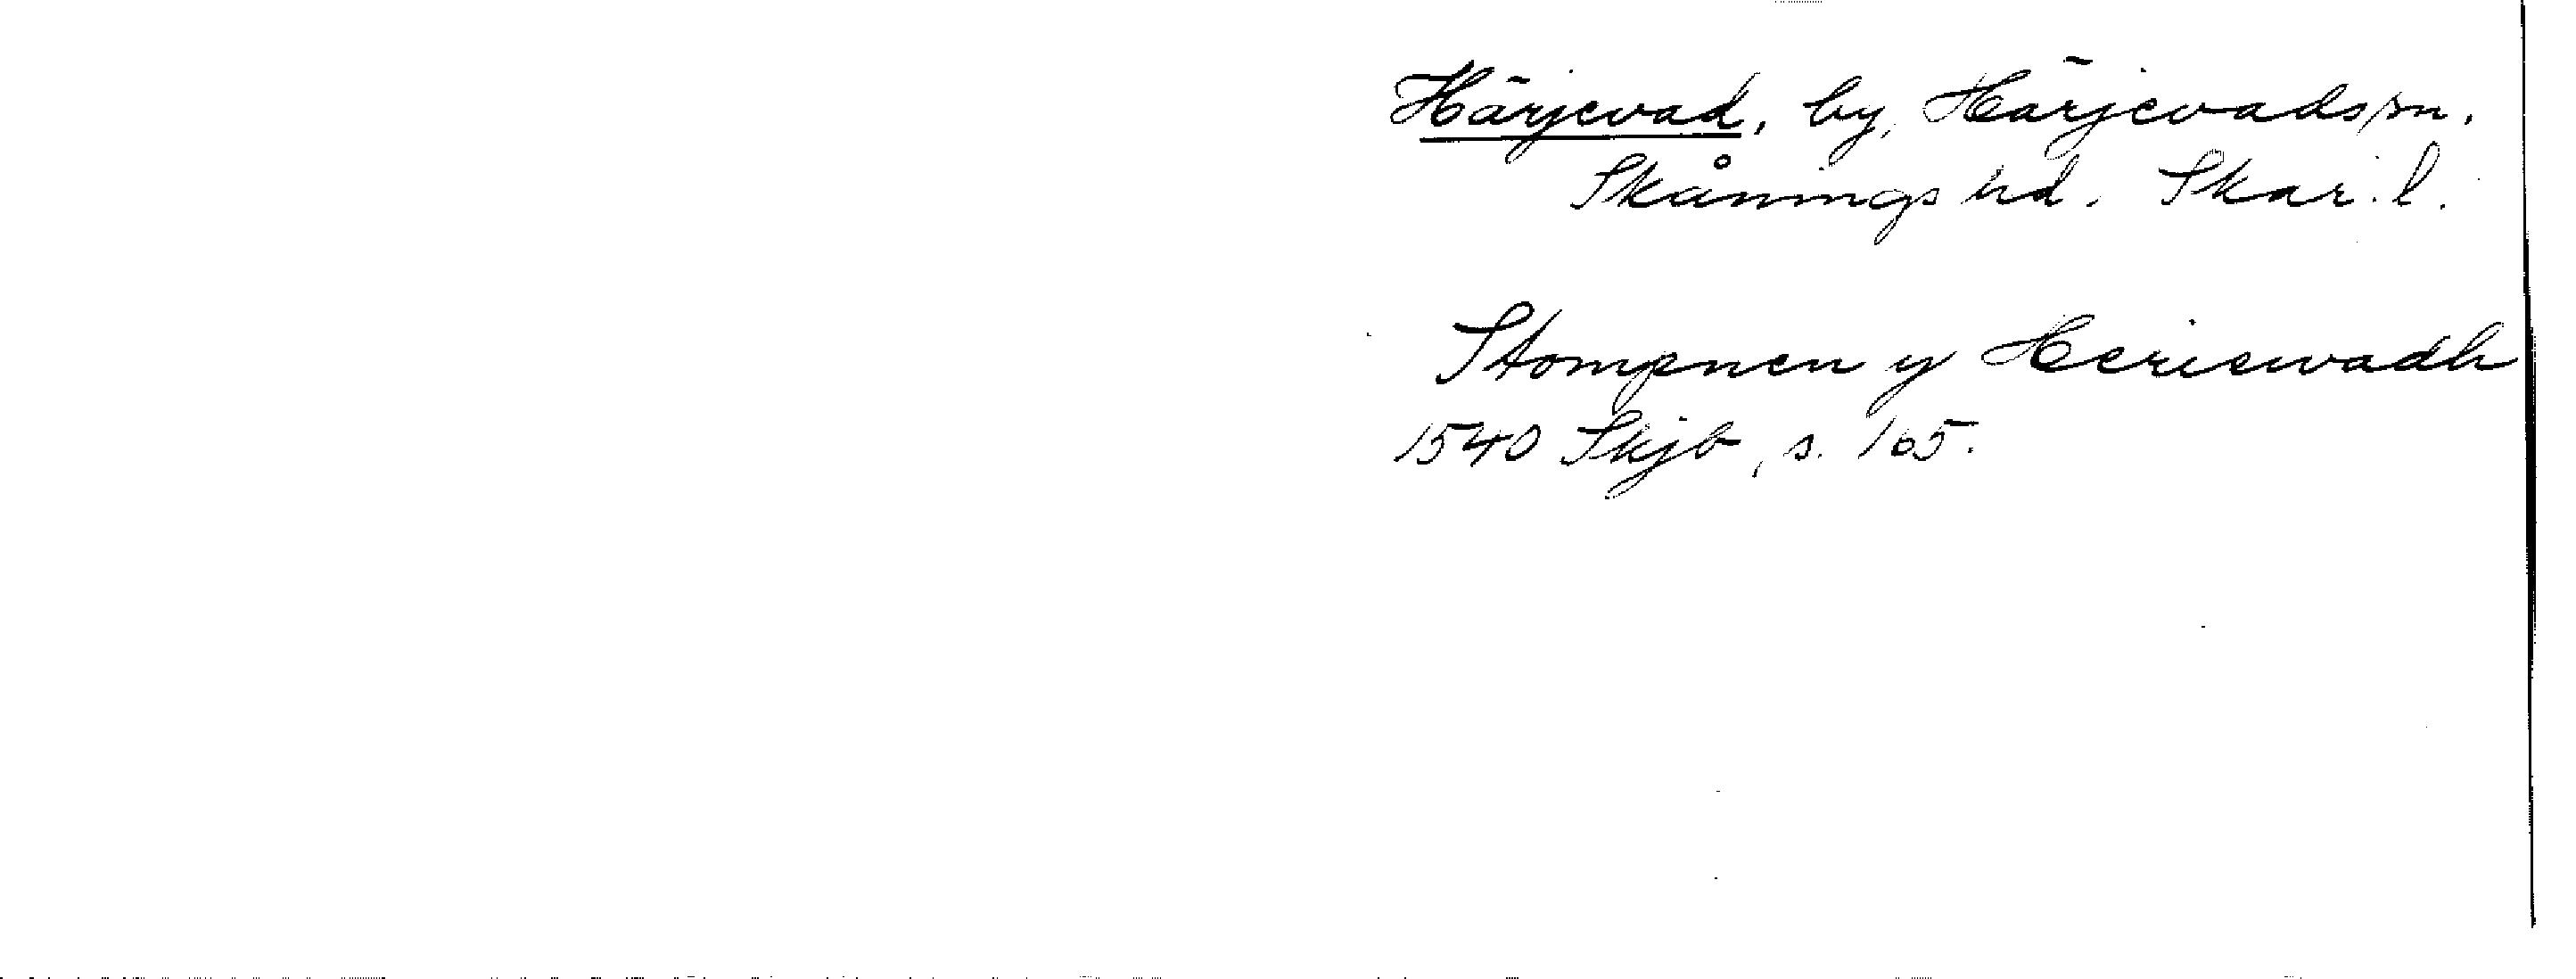 Härjevad, by, Härjevads sn.
Skånings hd. Skar. l.
Stompnen y Heriewadh
1540 Skjb, s. 165.